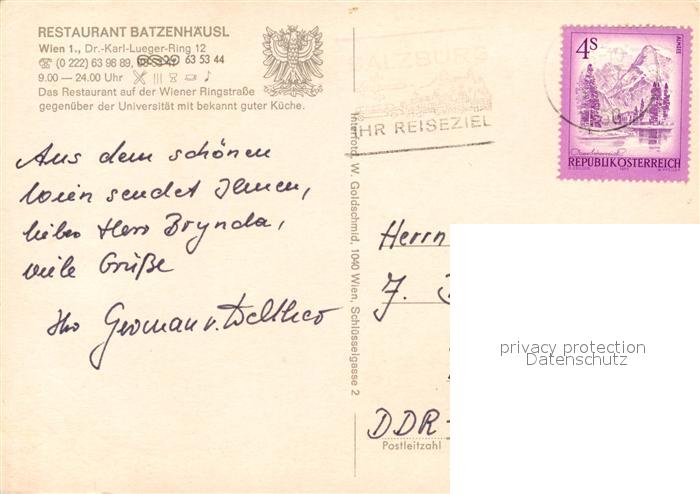 RESTAURANT BATZENHÄUSL
Wien 1., Dr.-Karl-Lueger-Ring 12
☎ (0 222) 63 98 89, 63 53 44
9.00 — 24.00 Uhr
Das Restaurant auf der Wiener Ringstraße
gegenüber der Universität mit bekannt guter Küche.
SALZBURG
IHR REISEZIEL
4S
ALMSEE
REPUBLIK ÖSTERREICH
Aus dem schönen
Wien sendet Ihnen,
lieber Herr Brynda,
viele Grüße
Ihr German v.
Interfoto, W. Goldschmid, 1040 Wien, Schlüsselgasse 2
Herrn
J.
DDR-
Postleitzahl
privacy protection
Datenschutz